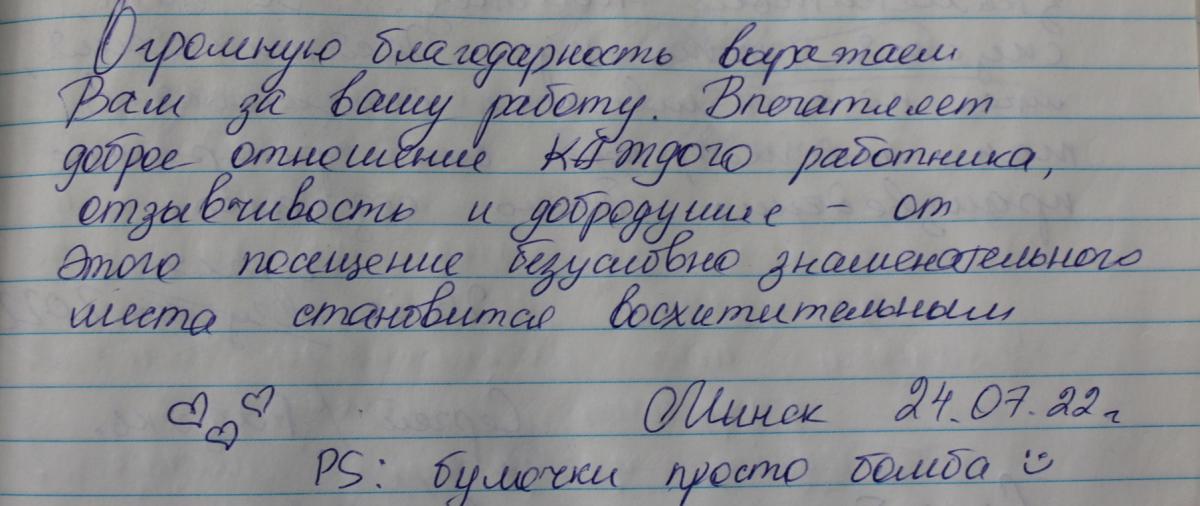 Огромную благодарность выражаем
Вам за вашу работу. Впечатляет
доброе отношение КАждого работника,
отзывчивость и добродушие – от
этого посещение безусловно знаменательного
места становится восхитительным
Минск 24.07.22г
PS: булочки просто бомба